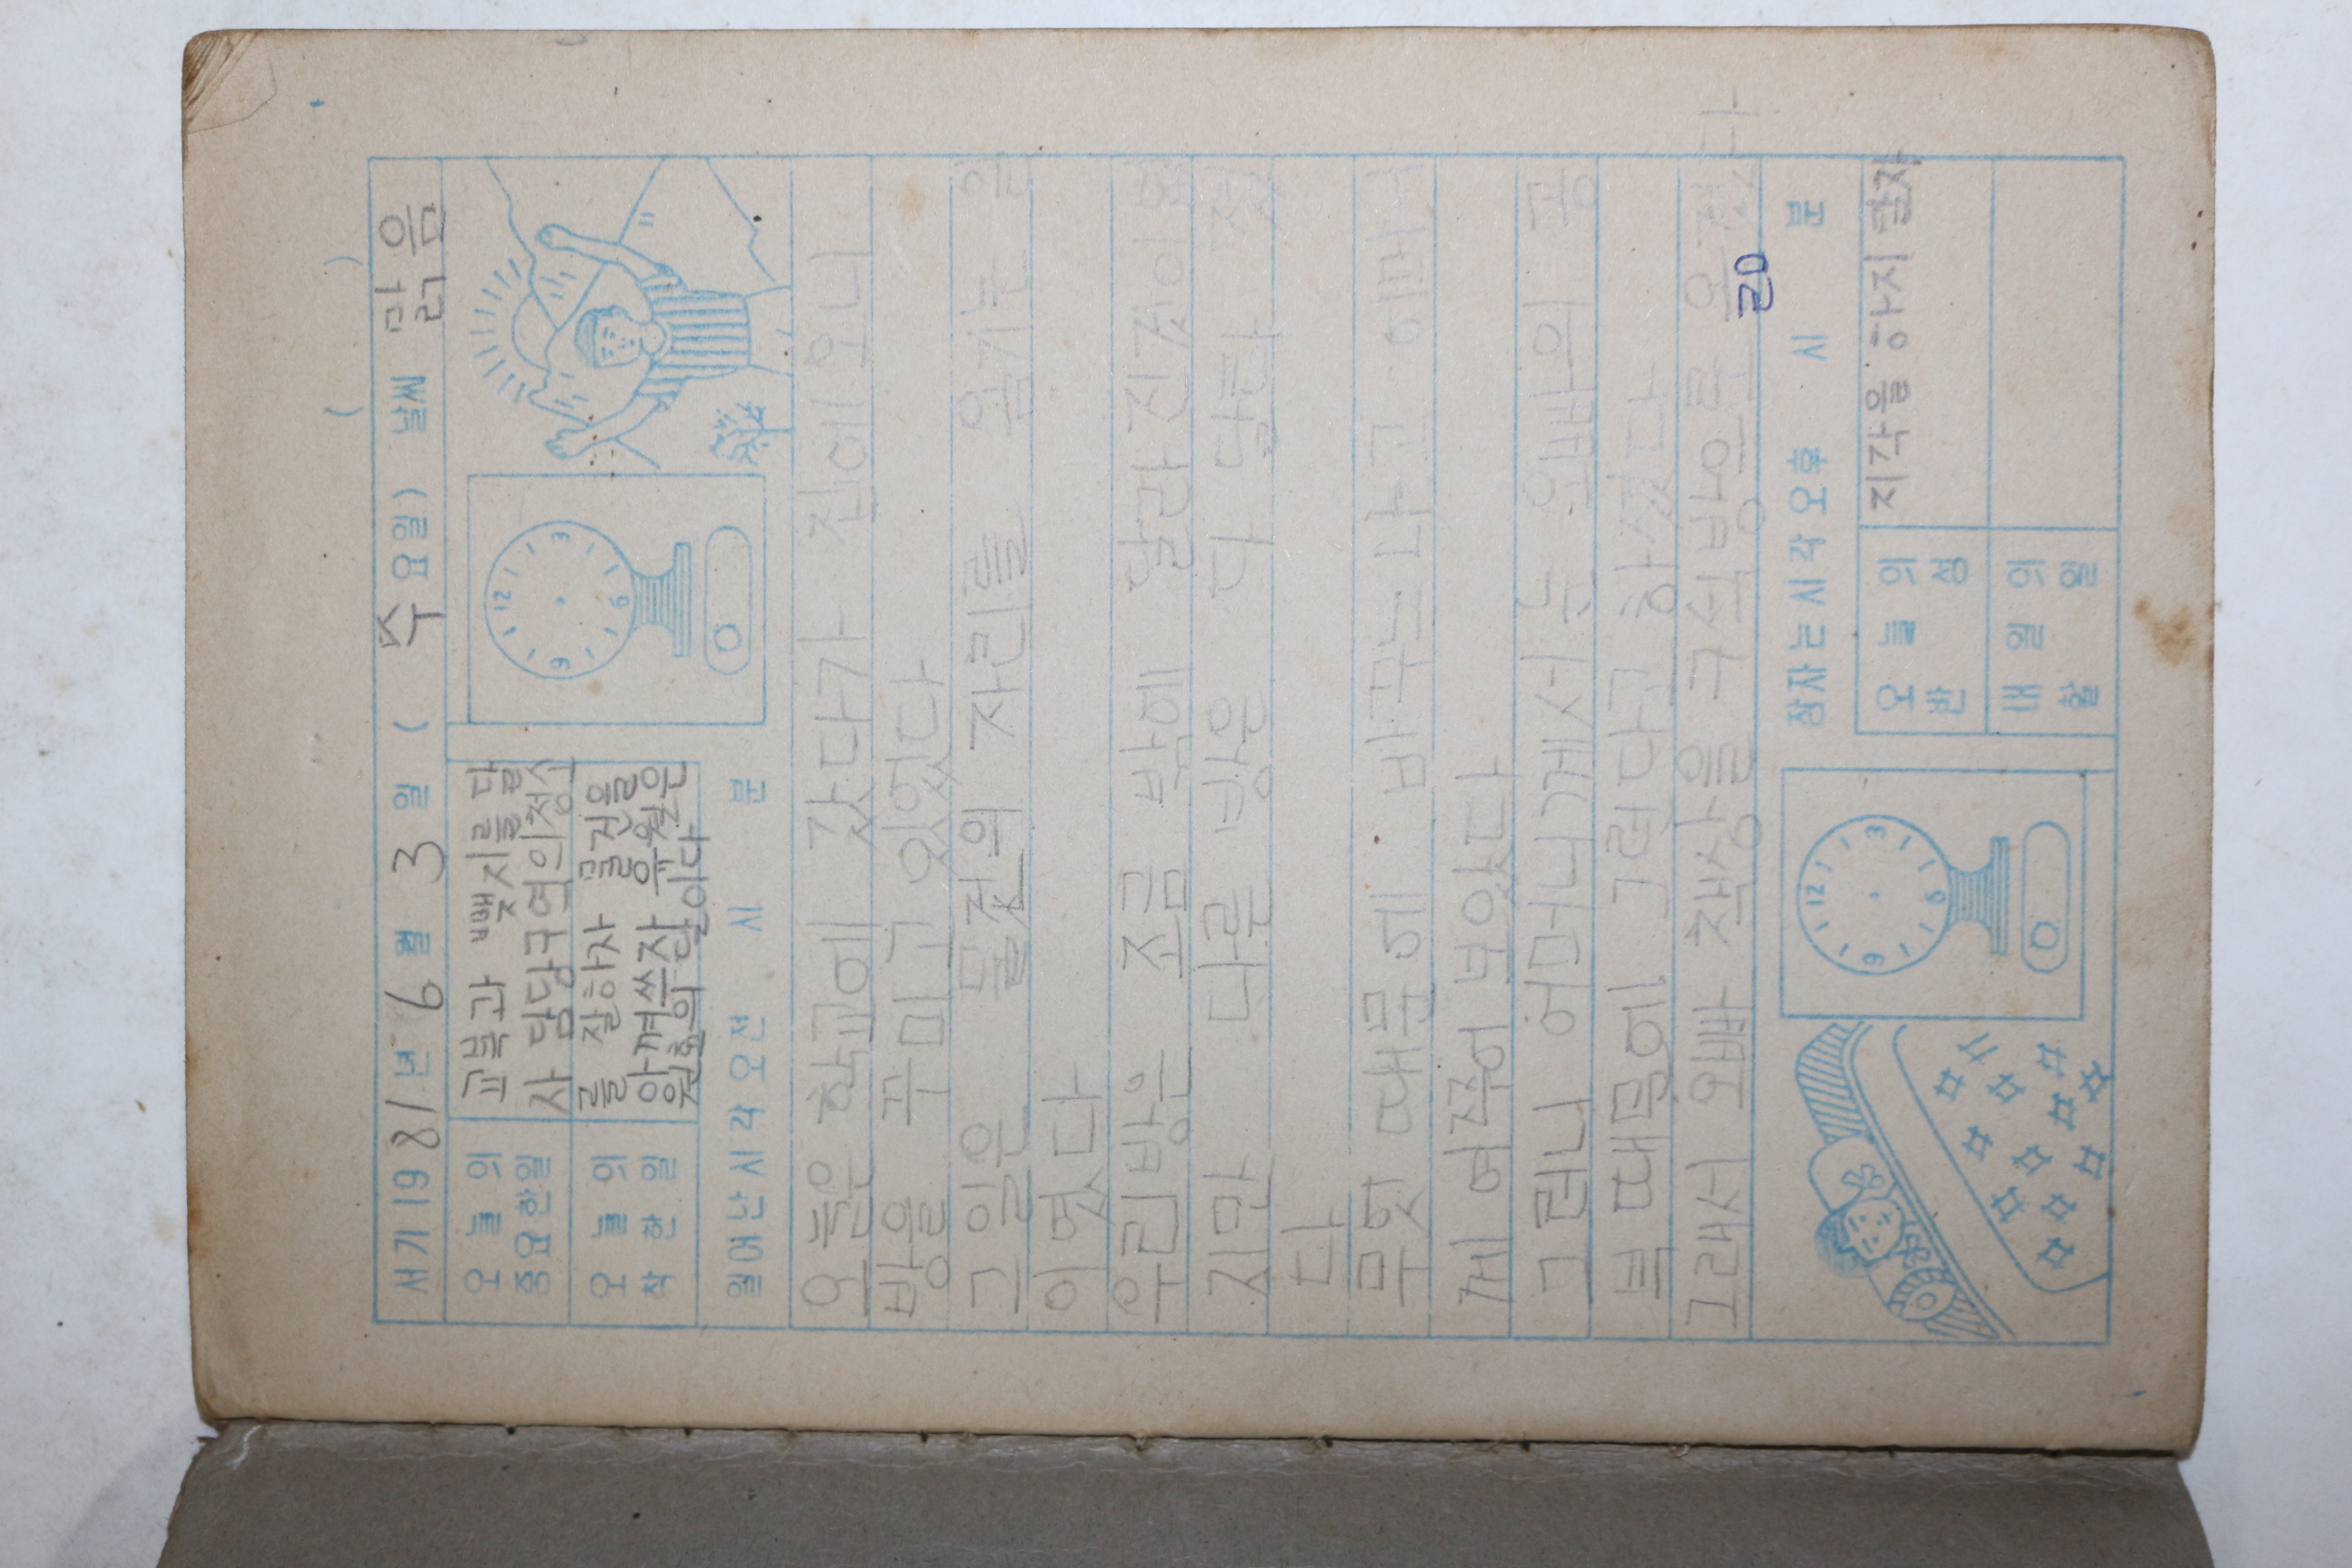 ( )
서기 1981년 6월 3일 ( 수요일) 날씨 맑음
오늘의 중요한일
교복과 뺏지를 달
자 담당구역의 청소
오늘의 착한일
를 잘하자 물건을
아껴쓰자 유월은
원호의 달이다
12 3 6 9
일어난시각 오전 시 분
오늘은 학교에 갔다가 집에 오니
방을 꾸미고 있었다
그 일은 물건의 자리를 옴기는
이였다
우리방은 조금 밖에 달라진것이
지만 다른 방은 다 달라 젔
다
무엇 때문에 바꾸느냐고 어머니
께 여쭈어 보았다
그러니 어머니께서는 오빠의 공
부 때문에 그런다고 하셨다
그래서 오빠 책상을 구석방으로 옴겼다
ㄹㅁ
12 3 6 9
잠자는시각 오후 시 분
오늘의 반성
지각을 하지 말자
내일의 할일